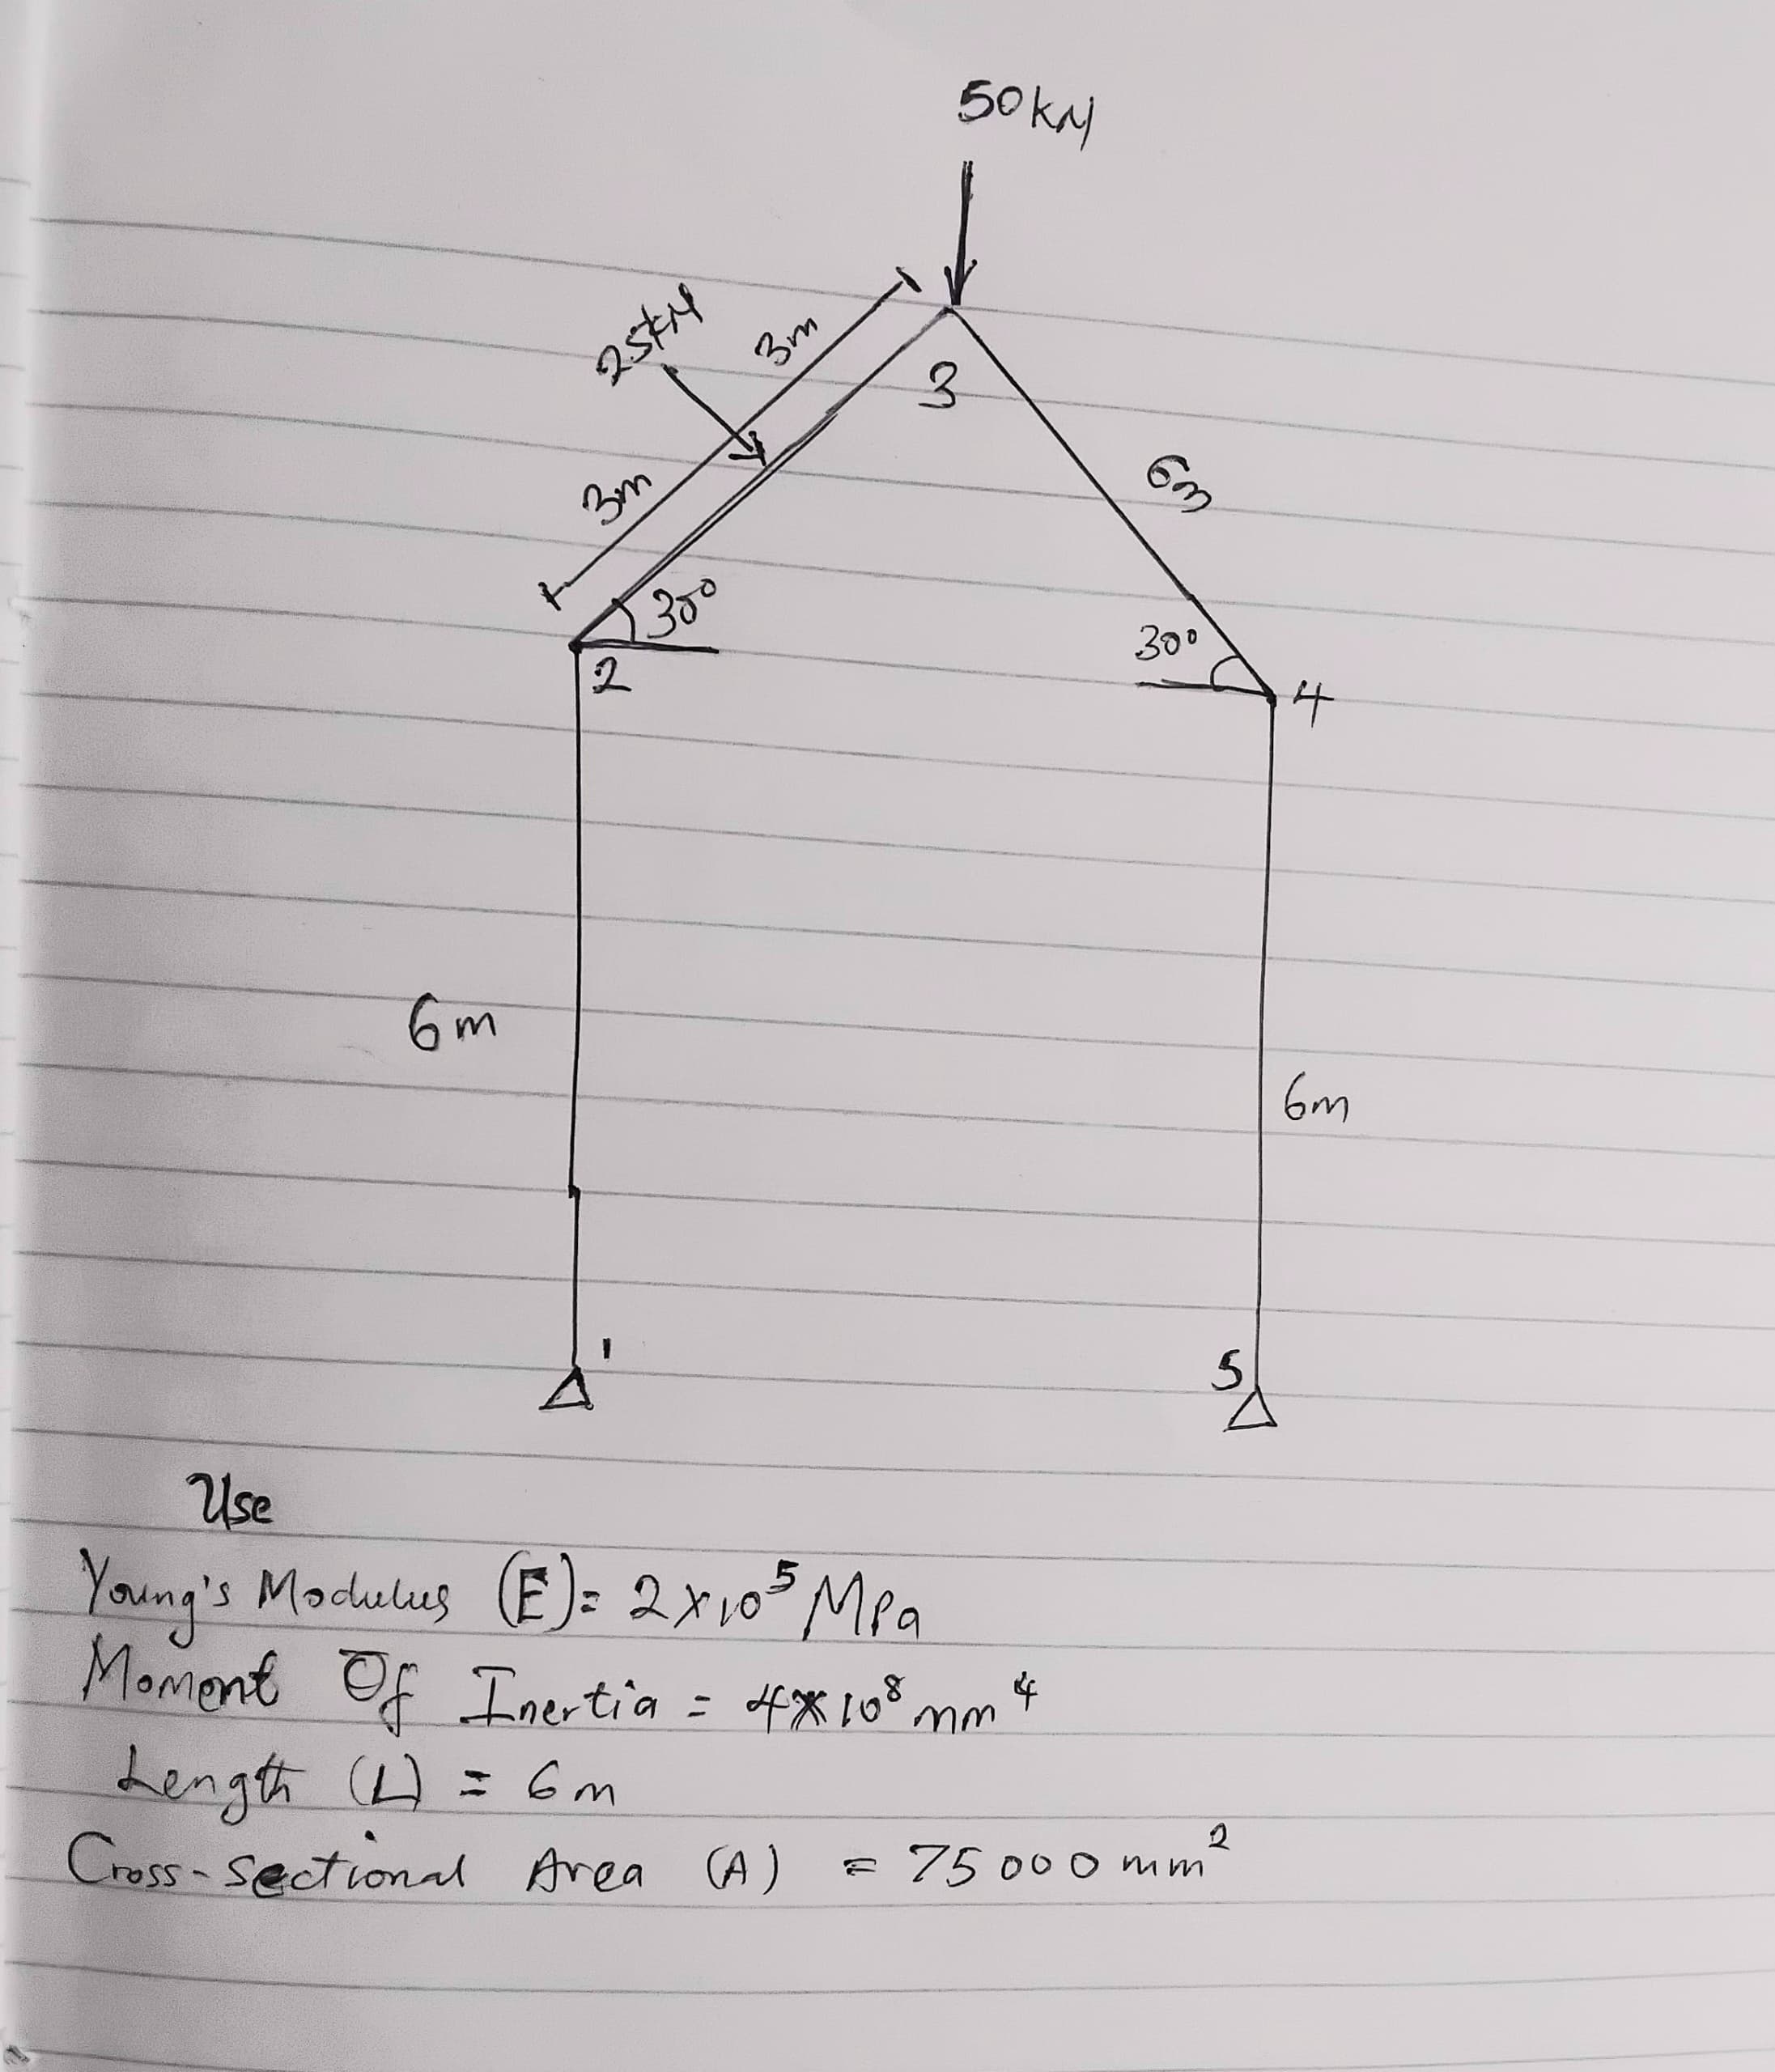 50kN
25kN
3m
3
3m
6m
30°
30°
2
4
6m
6m
1
5
Use
Young's Modulus (E)= 2×10⁵ MPa
Moment Of Inertia = 4×10⁸ mm⁴
Length (L) = 6m
Cross-sectional Area (A) = 75000mm²